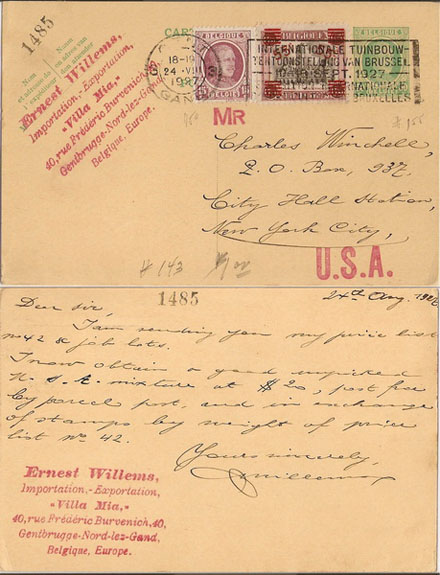 1485
CARTE
Ernest Willems,
Importation,-Exportation,
"Villa Mia,"
40, rue Frédéric Burvenich, 40,
Gentbrugge-Nord-lez-Gand,
Belgique, Europe.
18-19
24 -VIII
1927
GENT
BELGIQUE
BELGIË
INTERNATIONALE TUINBOUW-
TENTOONSTELLING VAN BRUSSEL
SEPT. 1927
BRUXELLES
MR
Charles Winchell,
P.O. Box, 937,
City Hall Station,
New York City,
U.S.A.
# 143
1485
24th Aug. 1927
Dear Sir,
I am sending you my price list
no 42 & job lots.
I now obtain a good unpicked
U. S. A. mixture at $ 20, post free
by parcel post and in exchange
of stamps by weight of price
list no. 42.
Yours sincerely,
EWillems
Ernest Willems,
Importation,-Exportation,
"Villa Mia,"
40, rue Frédéric Burvenich, 40,
Gentbrugge-Nord-lez-Gand,
Belgique, Europe.